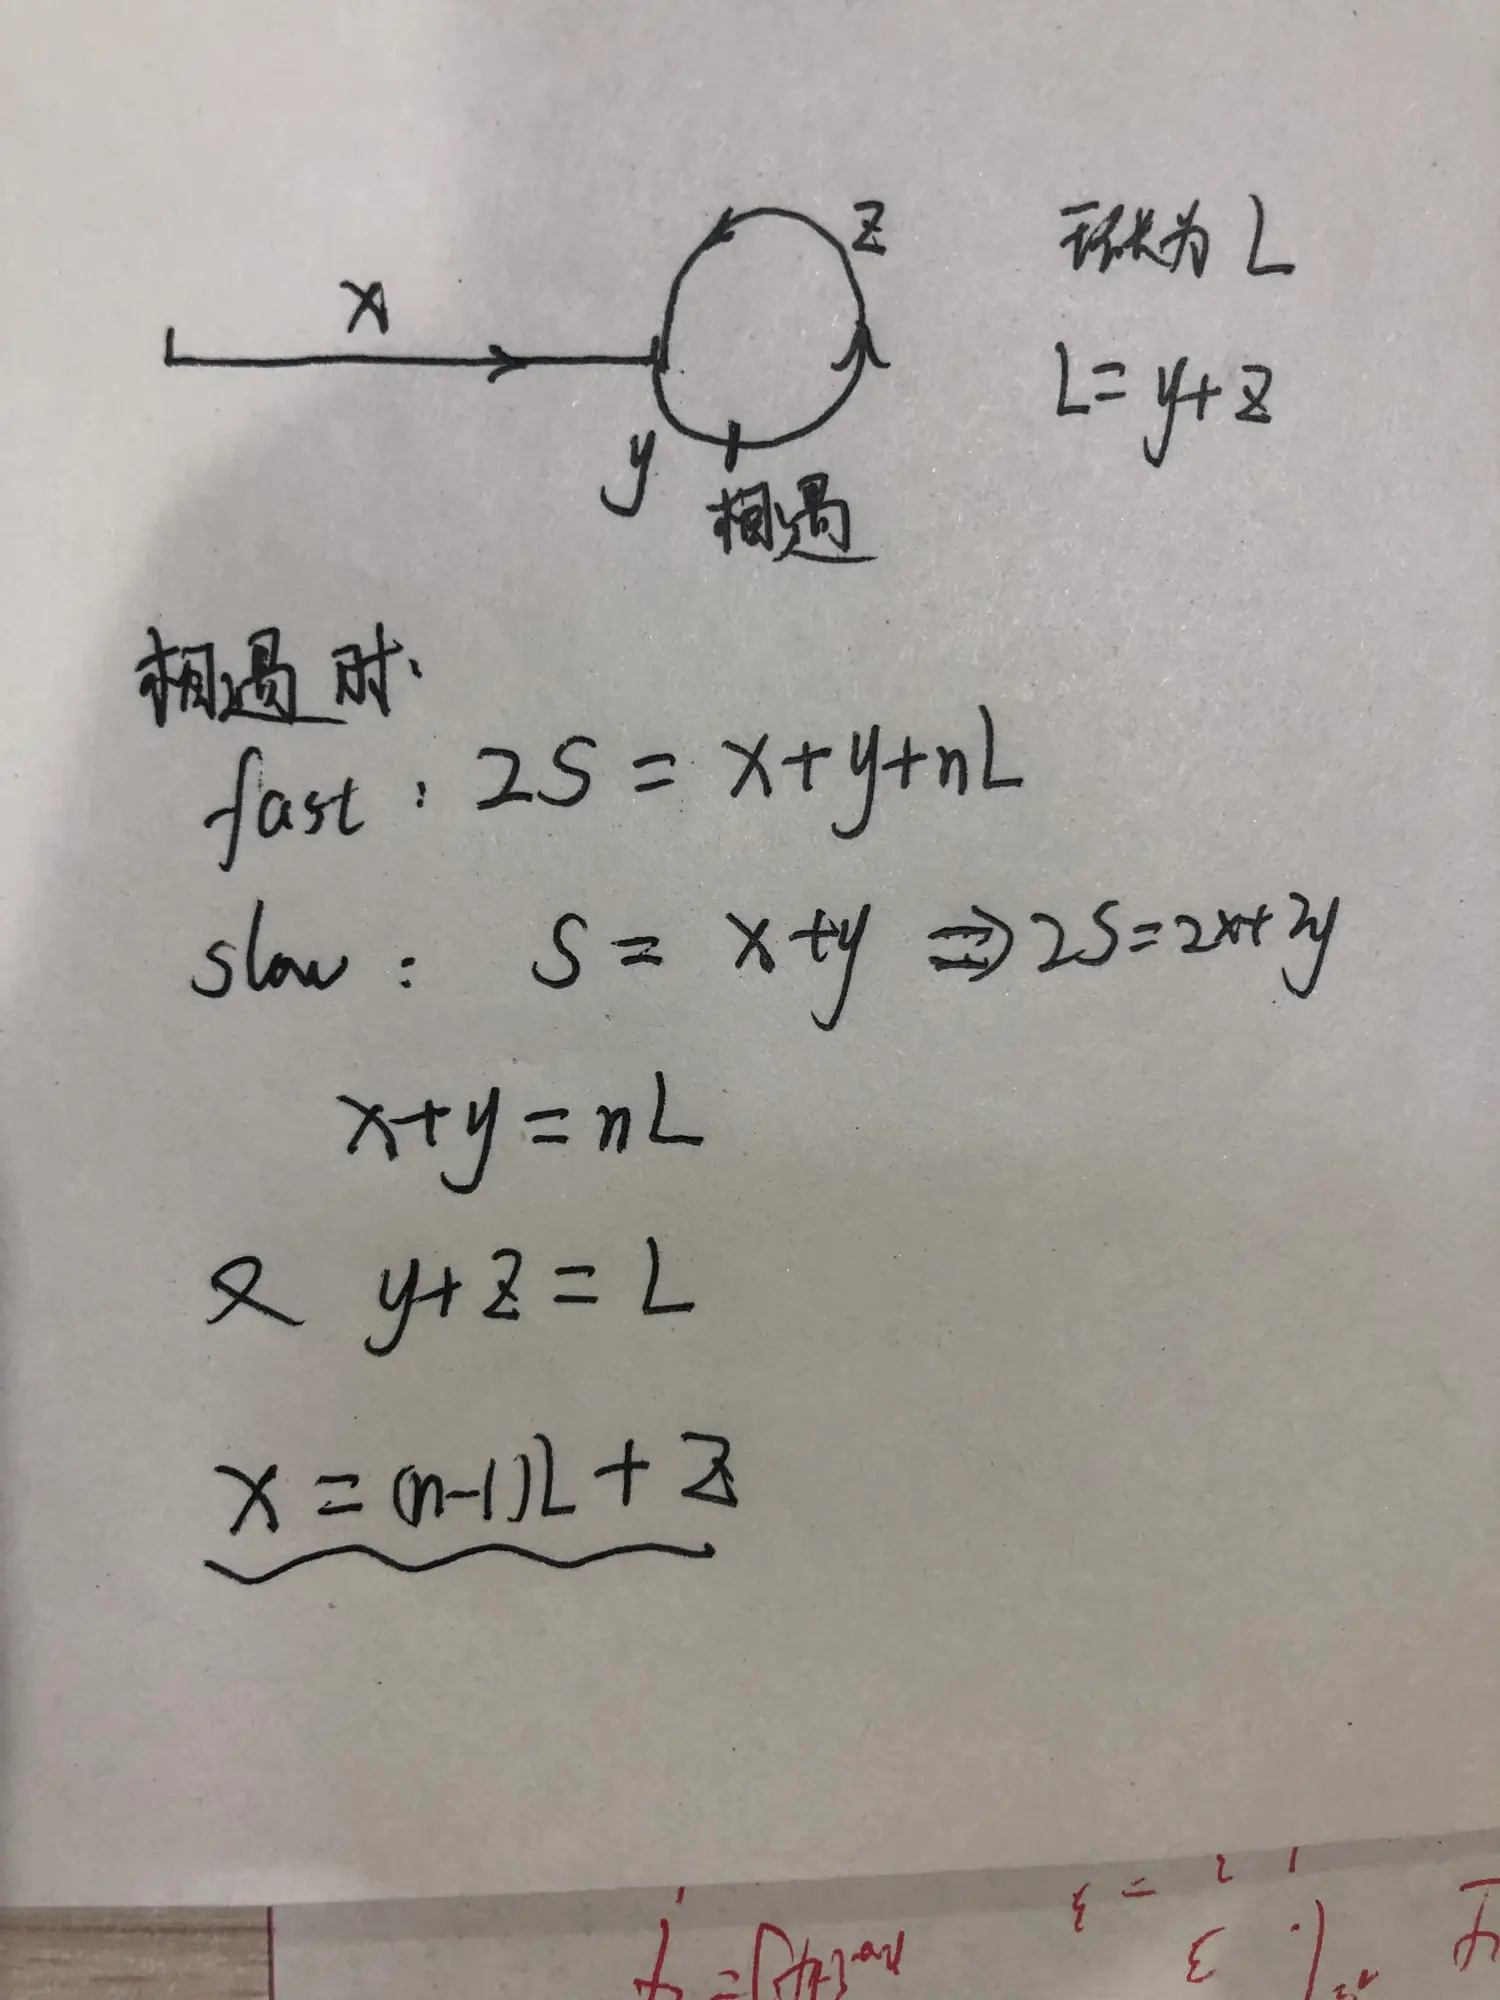 x
z
环长为 L
L = y+z
y
相遇
相遇时:
fast : 2S = x+y+nL
slow : S = x+y ⇒ 2S=2x+2y
x+y=nL
又 y+z=L
x=(n-1)L+z